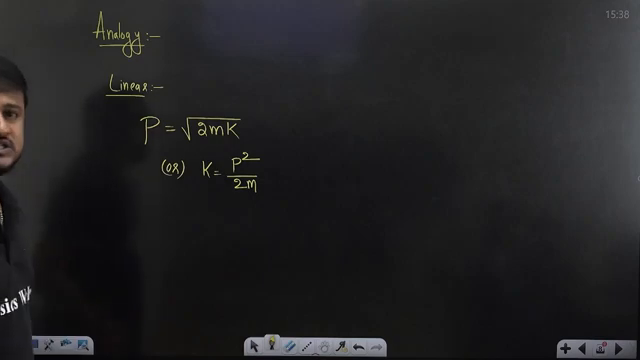 15:38
Analogy:-
Linear:-
P = √2mK
(or) K = P²/2m